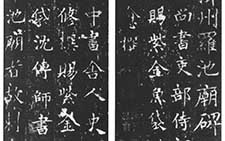 州羅池廟碑
尚書吏部侍
賜紫金魚袋
愈撰
中書舍人史
修撰賜紫金
袋沈傳師書
池廟者故刺